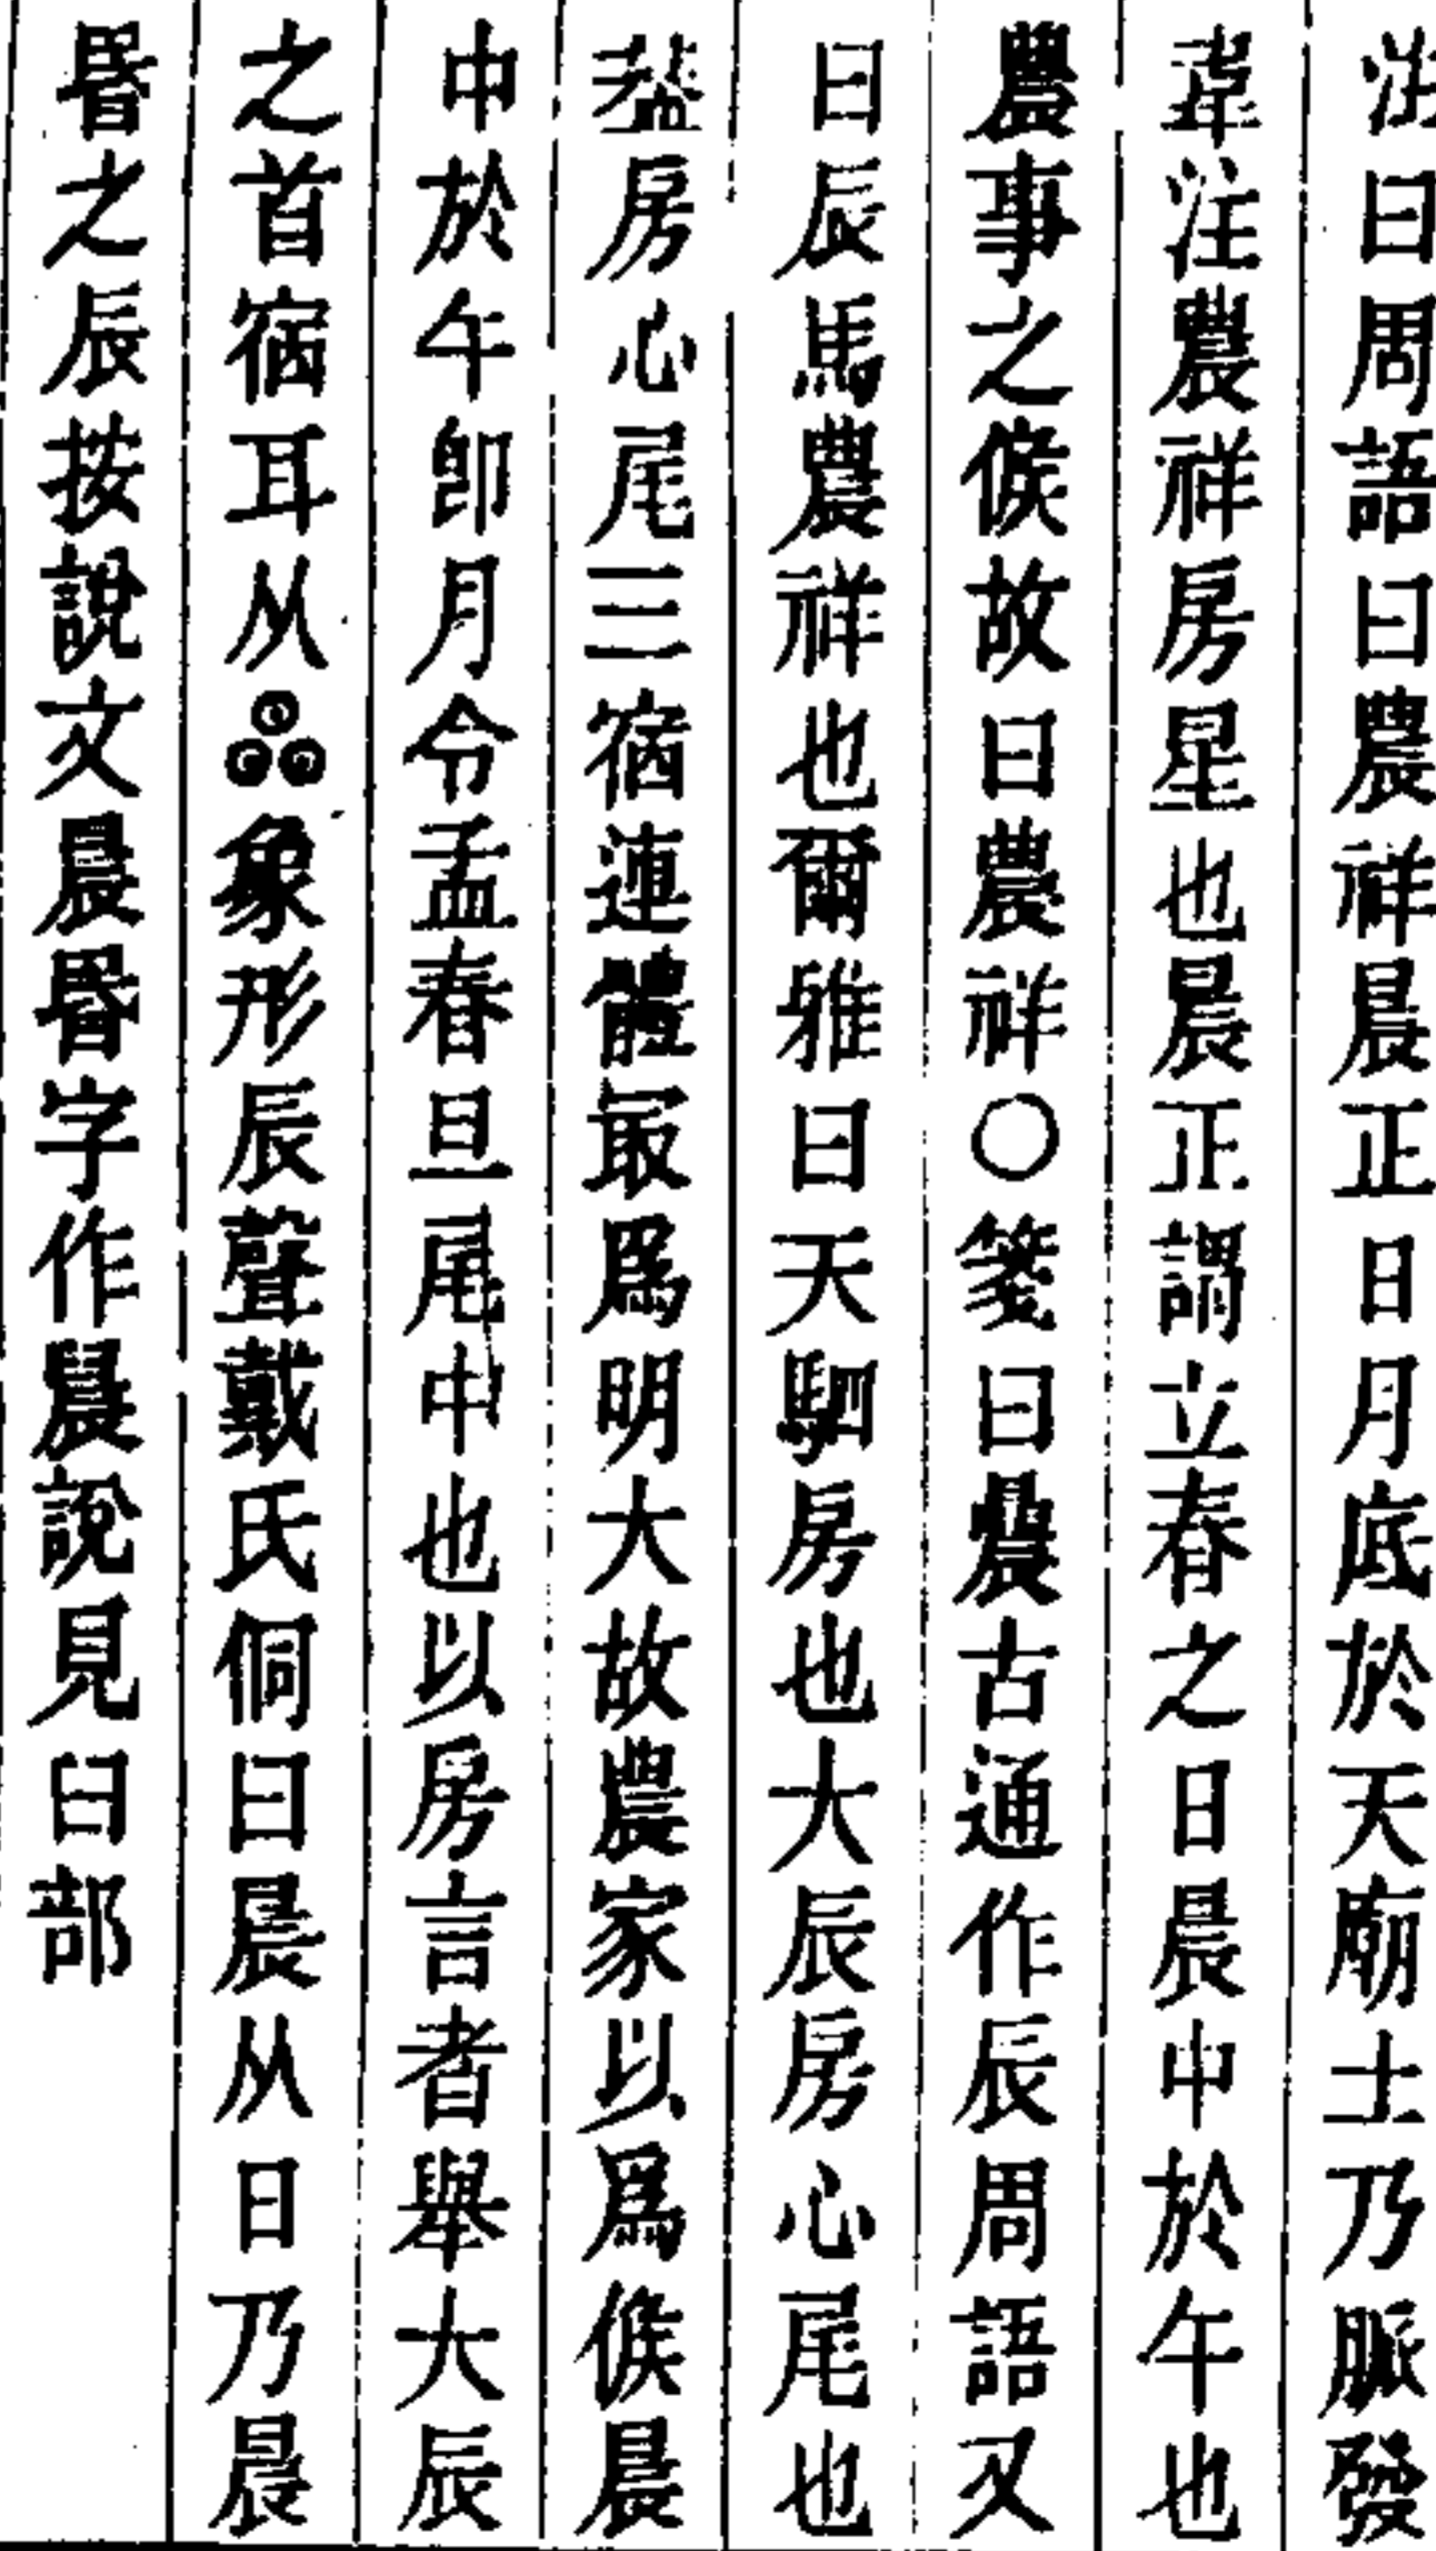 注曰周語曰農祥晨正日月底於天廟土乃脈發
韋注農祥房星也晨正謂立春之日晨中於午也
農事之候故曰農祥〇箋曰曟古通作辰周語又
曰辰馬農祥也爾雅曰天駟房也大辰房心尾也
葢房心尾三宿連體㝡爲明大故農家以爲候晨
中於午卽月令孟春旦尾中也以房言者舉大辰
之首宿耳从象形辰聲戴氏侗曰晨从日乃晨
昬之辰按說文晨昬字作䢅說見𦥑部